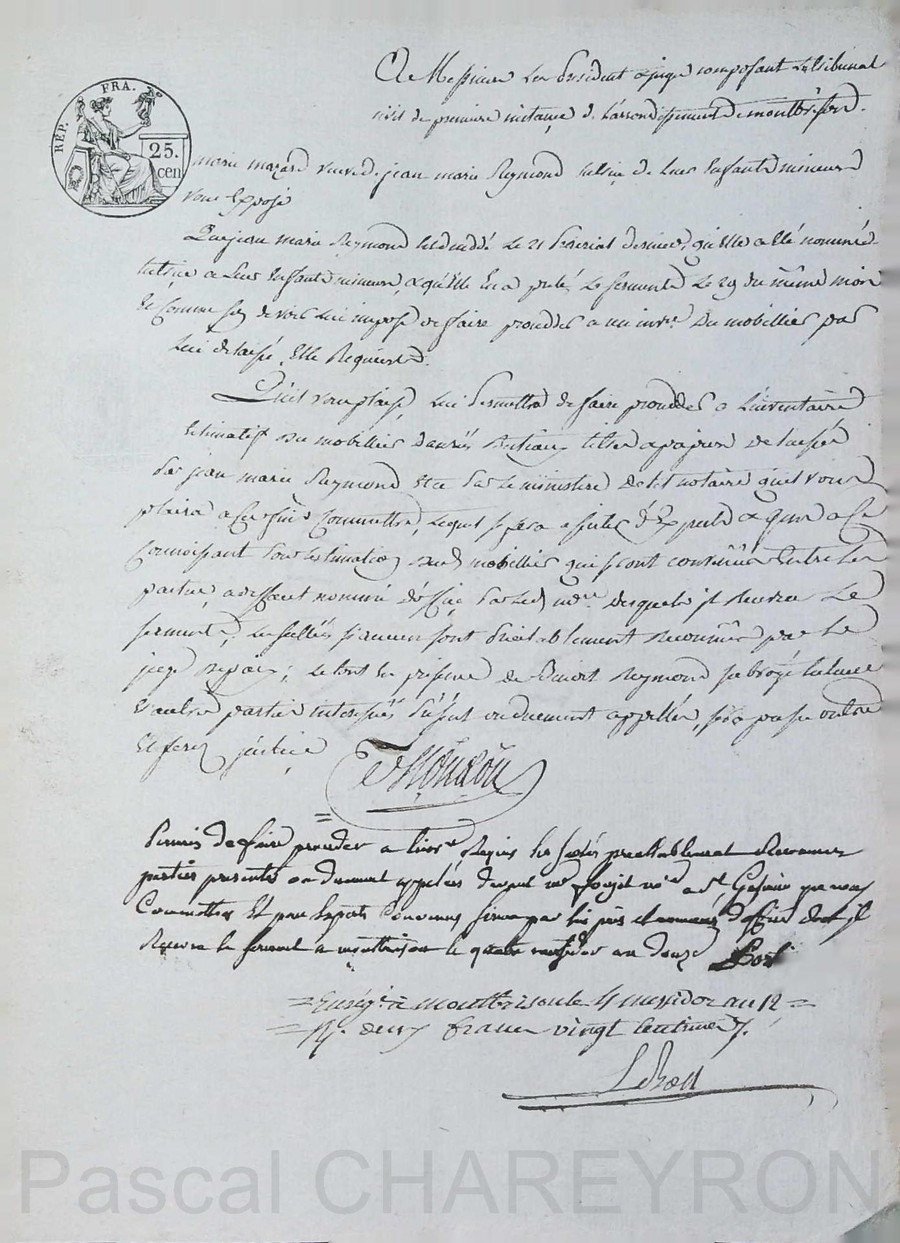 RÉP. FRA.
25.
cen
A Messieurs Les President & juges composant Le tribunal
civil de premiere instance de L'arrondissement de montbrison
marie mazard veuve de jean marie Reymond tutrice de Leurs Enfants mineurs
vous Expose
Que jean marie Reymond est décédé Le 21 prairial dernier, qu'elle a été nommée
tutrice a Leurs Enfants mineurs, & qu'elle En a preté Le serment Le 29 du même mois
Et Comme Ses devoirs Lui impose de faire proceder a un invre Du mobillier par
Lui delaissé, Elle Requiert
Qu'il vous plaise Lui permettre de faire proceder a L'inventaire
Estimatif du mobillier denrées Bestiaux titres & papiers delaissés
par jean marie Reymond & ce par Le ministere de tel notaire qu'il vous
plaira a Ces fins Commettre, Lequel sera assisté d'Experts & gens a Ce
Connoissant pour L'estimation dud mobillier qui seront convenus Entre Les
parties, a deffaut nommés d'office par Led nore desquels il Recevra Le
serment, Les scellés seront préalablement Reconnus par Le
juge de paix; Le tout En présence de Benoit Reymond subrogé tuteur
& autres parties interessées ou duement appellées, sera passé outre
Et ferez justice
Permis de faire proceder a l'invre Requis les scelés préallablement Reconnus
parties presentes ou duement appelées devant me not a St que nous
Commettons Et pour Experts Convenus sinon par lui pris et nommés d'office dont il
Recevra le serment a montbrison le quatre messidor an douze
Enregé à montbrison le 4 messidor an 12
R. deux francs vingt centimes
Pascal CHAREYRON